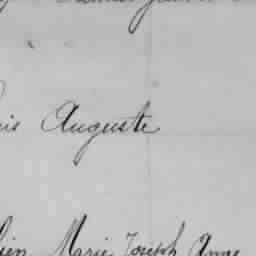 is Auguste
ien Marie Joseph Anne